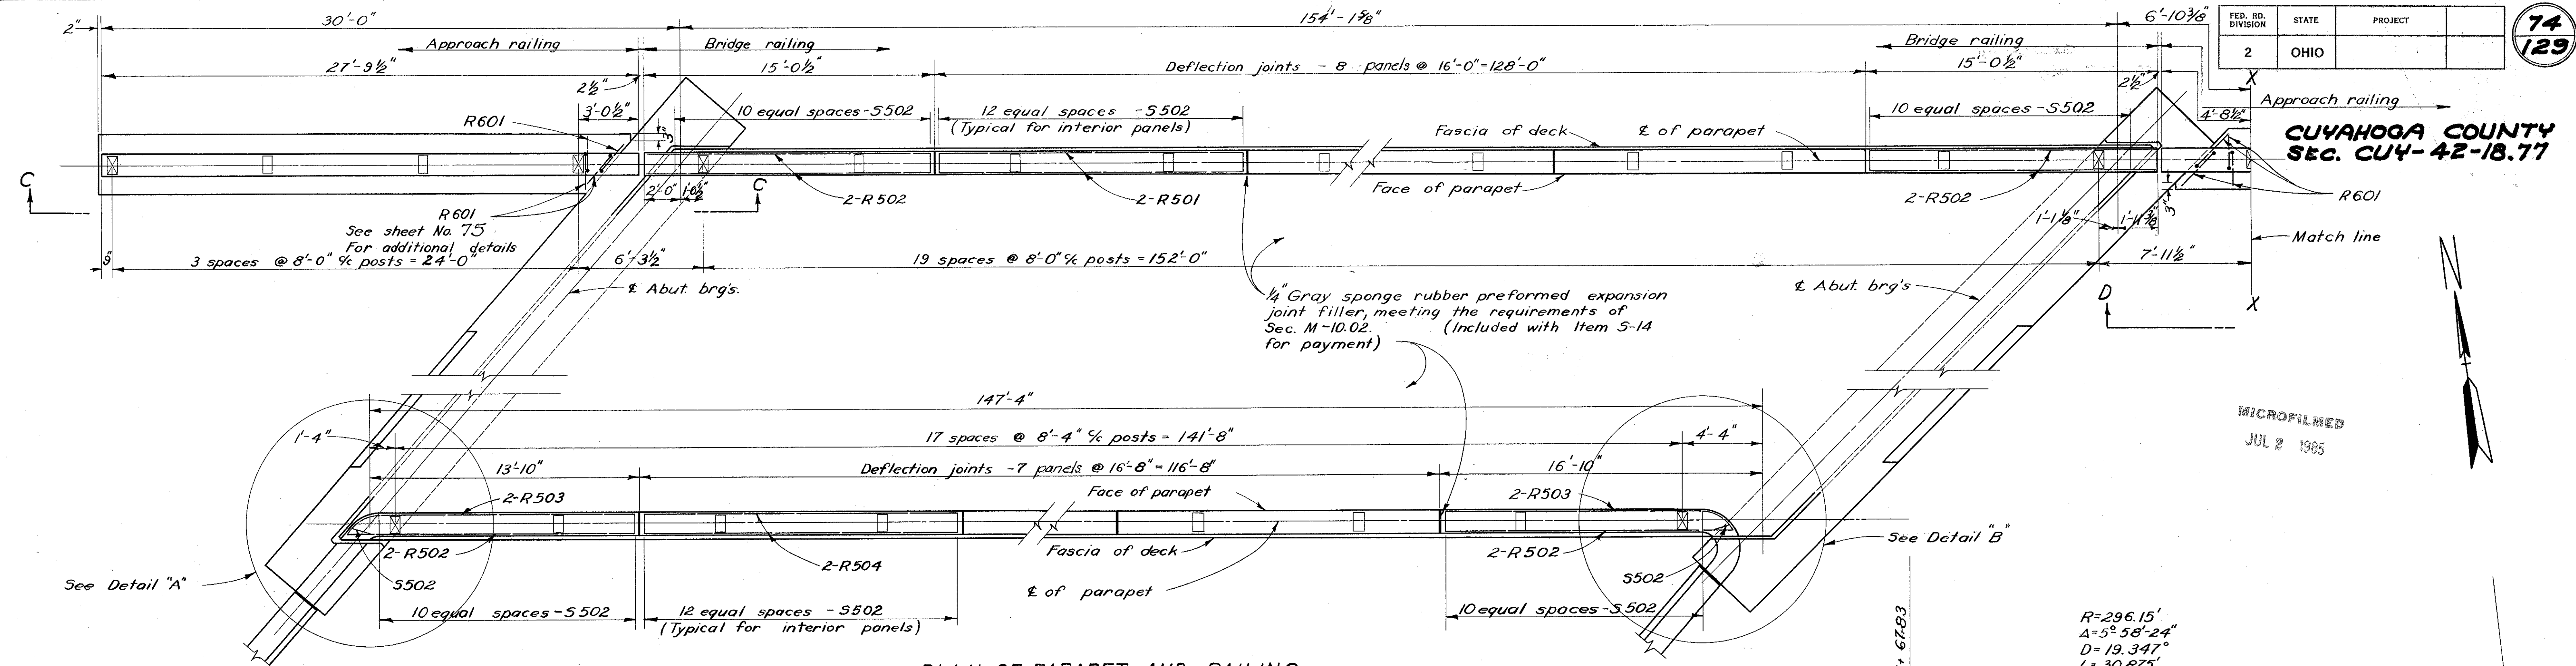 2"
30'-0"
154'-1⅝"
6'-10⅜"
FED. RD. DIVISION STATE PROJECT
2 OHIO
74
129
Approach railing
Bridge railing
Bridge railing
27'-9½"
15'-0½"
Deflection joints - 8 panels @ 16'-0"=128'-0"
15'-0½"
X
2½"
2½"
Approach railing
3'-0½"
10 equal spaces-S502
12 equal spaces -S502
(Typical for interior panels)
10 equal spaces-S502
4'-8½"
R601
3"
Fascia of deck
℄ of parapet
CUYAHOGA COUNTY
SEC. CUY-42-18.77
C
C
2'-0"
1'-0½"
2-R502
2-R501
Face of parapet
2-R502
R601
R601
See sheet No. 75
For additional details
1'-1⅛"
3"
Match line
9"
3 spaces @ 8'-0" c/c posts = 24'-0"
6'-3½"
19 spaces @ 8'-0" c/c posts = 152'-0"
7'-11½"
℄ Abut. brg's.
¼" Gray sponge rubber preformed expansion
joint filler, meeting the requirements of
Sec. M-10.02. (Included with Item S-14
for payment)
℄ Abut. brg's
D
X
N
147'-4"
MICROFILMED
JUL 2 1985
1'-4"
17 spaces @ 8'-4" c/c posts = 141'-8"
4'-4"
13'-10"
Deflection joints -7 panels @ 16'-8"=116'-8"
16'-10"
2-R503
Face of parapet
2-R503
2-R502
2-R504
Fascia of deck
2-R502
See Detail "B"
See Detail "A"
S502
℄ of parapet
S502
10 equal spaces-S502
12 equal spaces -S502
(Typical for interior panels)
10 equal spaces-S502
+ 67.83
R=296.15'
Δ=5°58'-24"
D=19.347°
L=30.875'
PLAN OF PARAPET AND RAILING